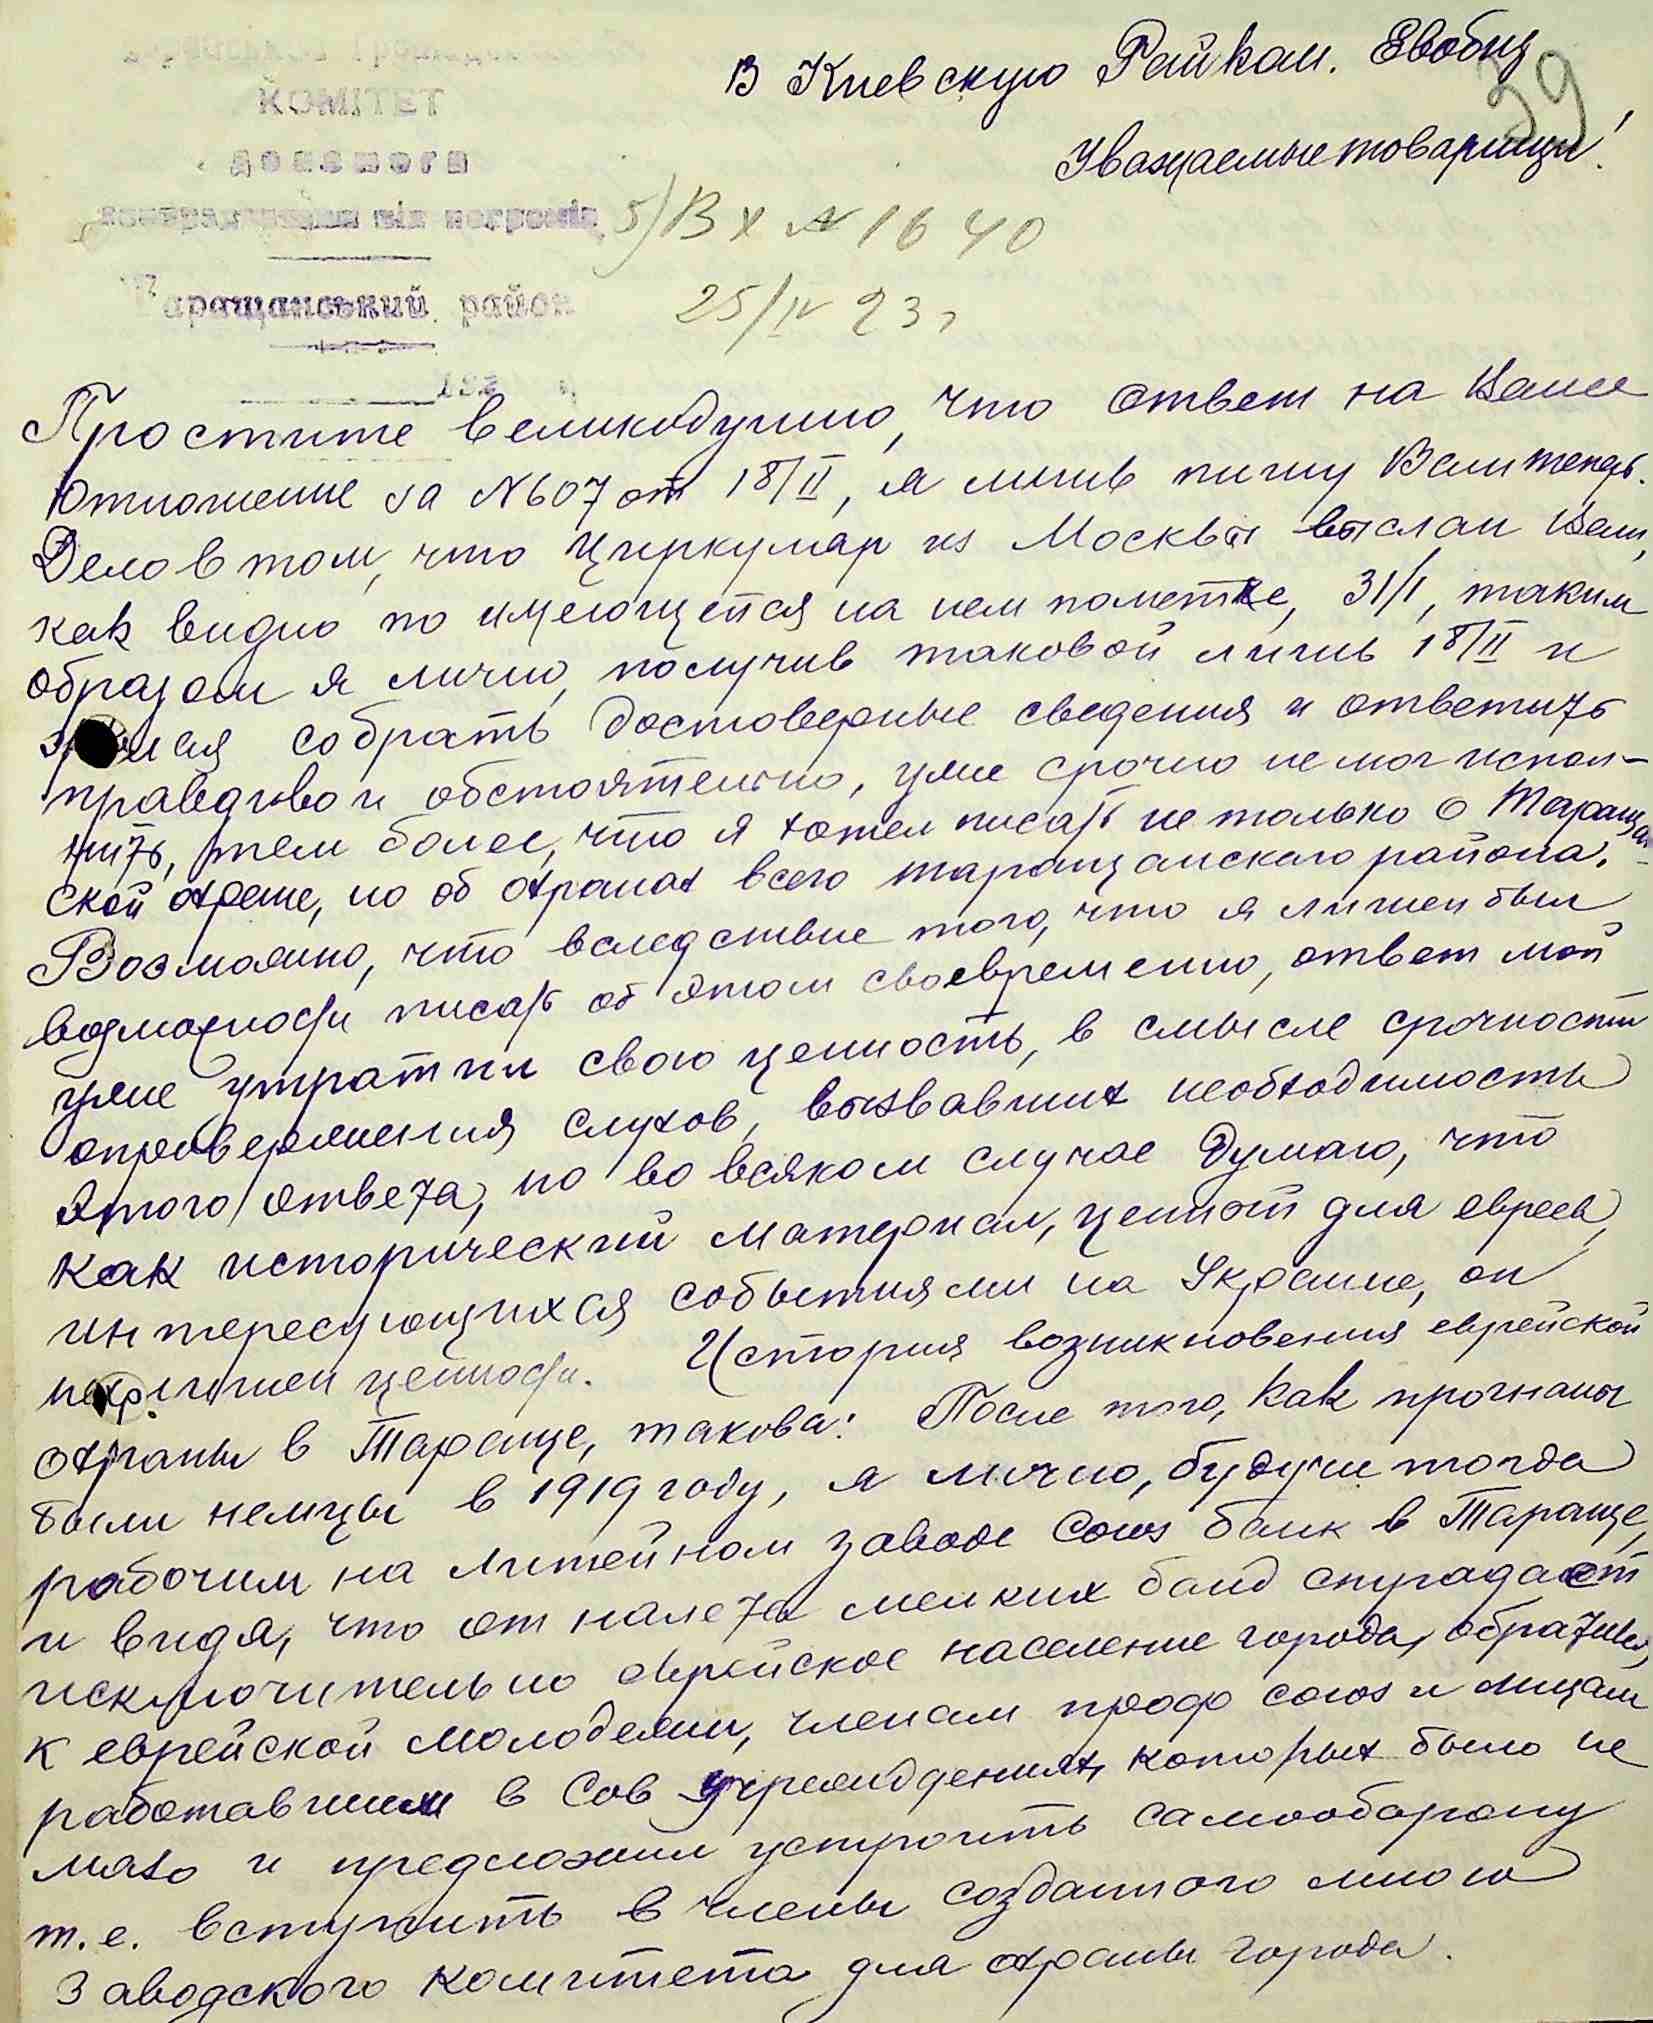 В Киевскую Райком. Евобщ
39
Уважаемые товарищи!
КОМІТЕТ
допомоги
від погромів
Таращанський район
5) Вх № 1640
25/IV 23 г
Простите великодушно, что ответ на Ваше
Отношение за N 607 от 18/II, я лишь пишу Вам теперь.
Дело в том, что циркуляр из Москвы выслан Вам,
как видно по имеющейся на нем пометке, 31/I, таким
образом я лично, получив таковой лишь 18/II и
собрать достоверные сведения и ответить
правдиво и обстоятельно, уже срочно не мог испол-
нить, тем более, что я хотел писать не только о Таращан-
ской охране, но об охранах всего таращанского района.
Возможно, что вследствие того, что я лишен был
возможности писать об этом своевременно, ответ мой
уже утратил свою ценность, в смысле срочности
опровержения слухов, вызвавших необходимость
этого ответа, но во всяком случае думаю, что
как исторический материал, ценный для евреев,
интересующихся событиями на Украине, он
не лишен ценности. История возникновения еврейской
охраны в Тараще, такова: После того, как прогнаны
были немцы в 1919 году, я лично, будучи тогда
рабочим на литейном заводе Союз банк в Тараще,
и видя, что от налета мелких банд страдает
исключительно еврейское население города, обратился
к еврейской молодежи, членам проф союз и лицам
работавшим в Сов учреждениях, которых было не
мало и предложил устроить самооборону
т.е. вступить в члены созданного мною
Заводского комитета для охраны города.